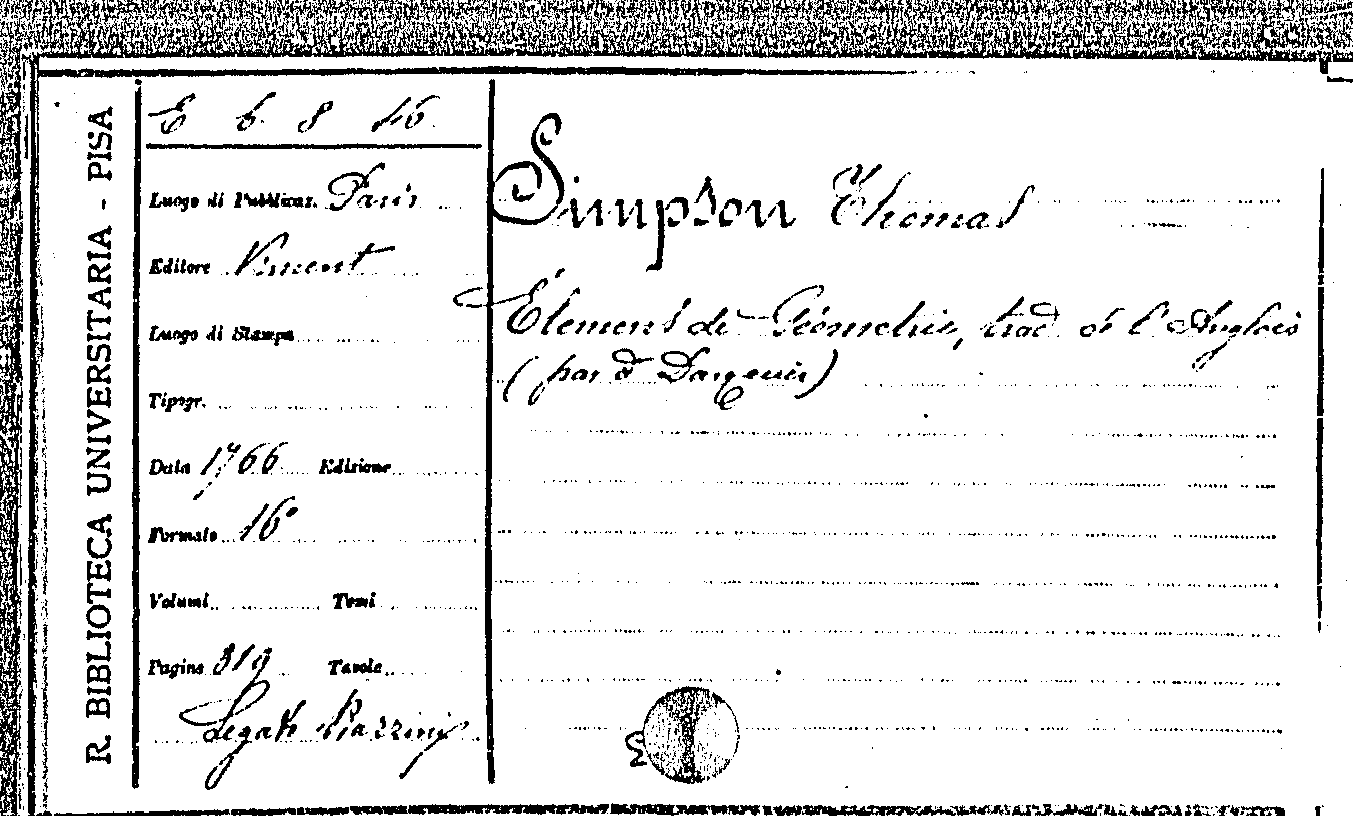 R. BIBLIOTECA UNIVERSITARIA - PISA
E 6. 8 46.
Luogo di Pubblicaz. Paris
Editore Vincent
Luogo di Stampa
Tipogr.
Data 1766 Edizione
Formato 16°
Volumi Tomi
Pagine 319 Tavole
Legato Piazzini
Simpson Thomas
Élemens de Géométrie, trad. de l'Anglois
(par d Darquier)